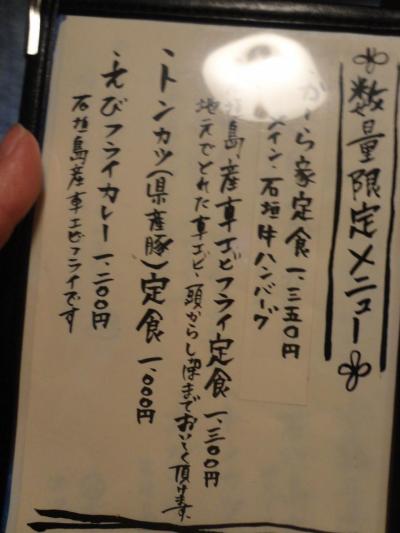 数量限定メニュー
がーら家定食 一、三五〇円
メイン・石垣牛ハンバーグ
石垣島産車エビフライ定食 一、三〇〇円
地元でとれた車エビ、頭からしっぽまでおいしく頂けます
、トンカツ(県産豚)定食 一、〇〇〇円
、えびフライカレー 一、二〇〇円
石垣島産車エビフライです